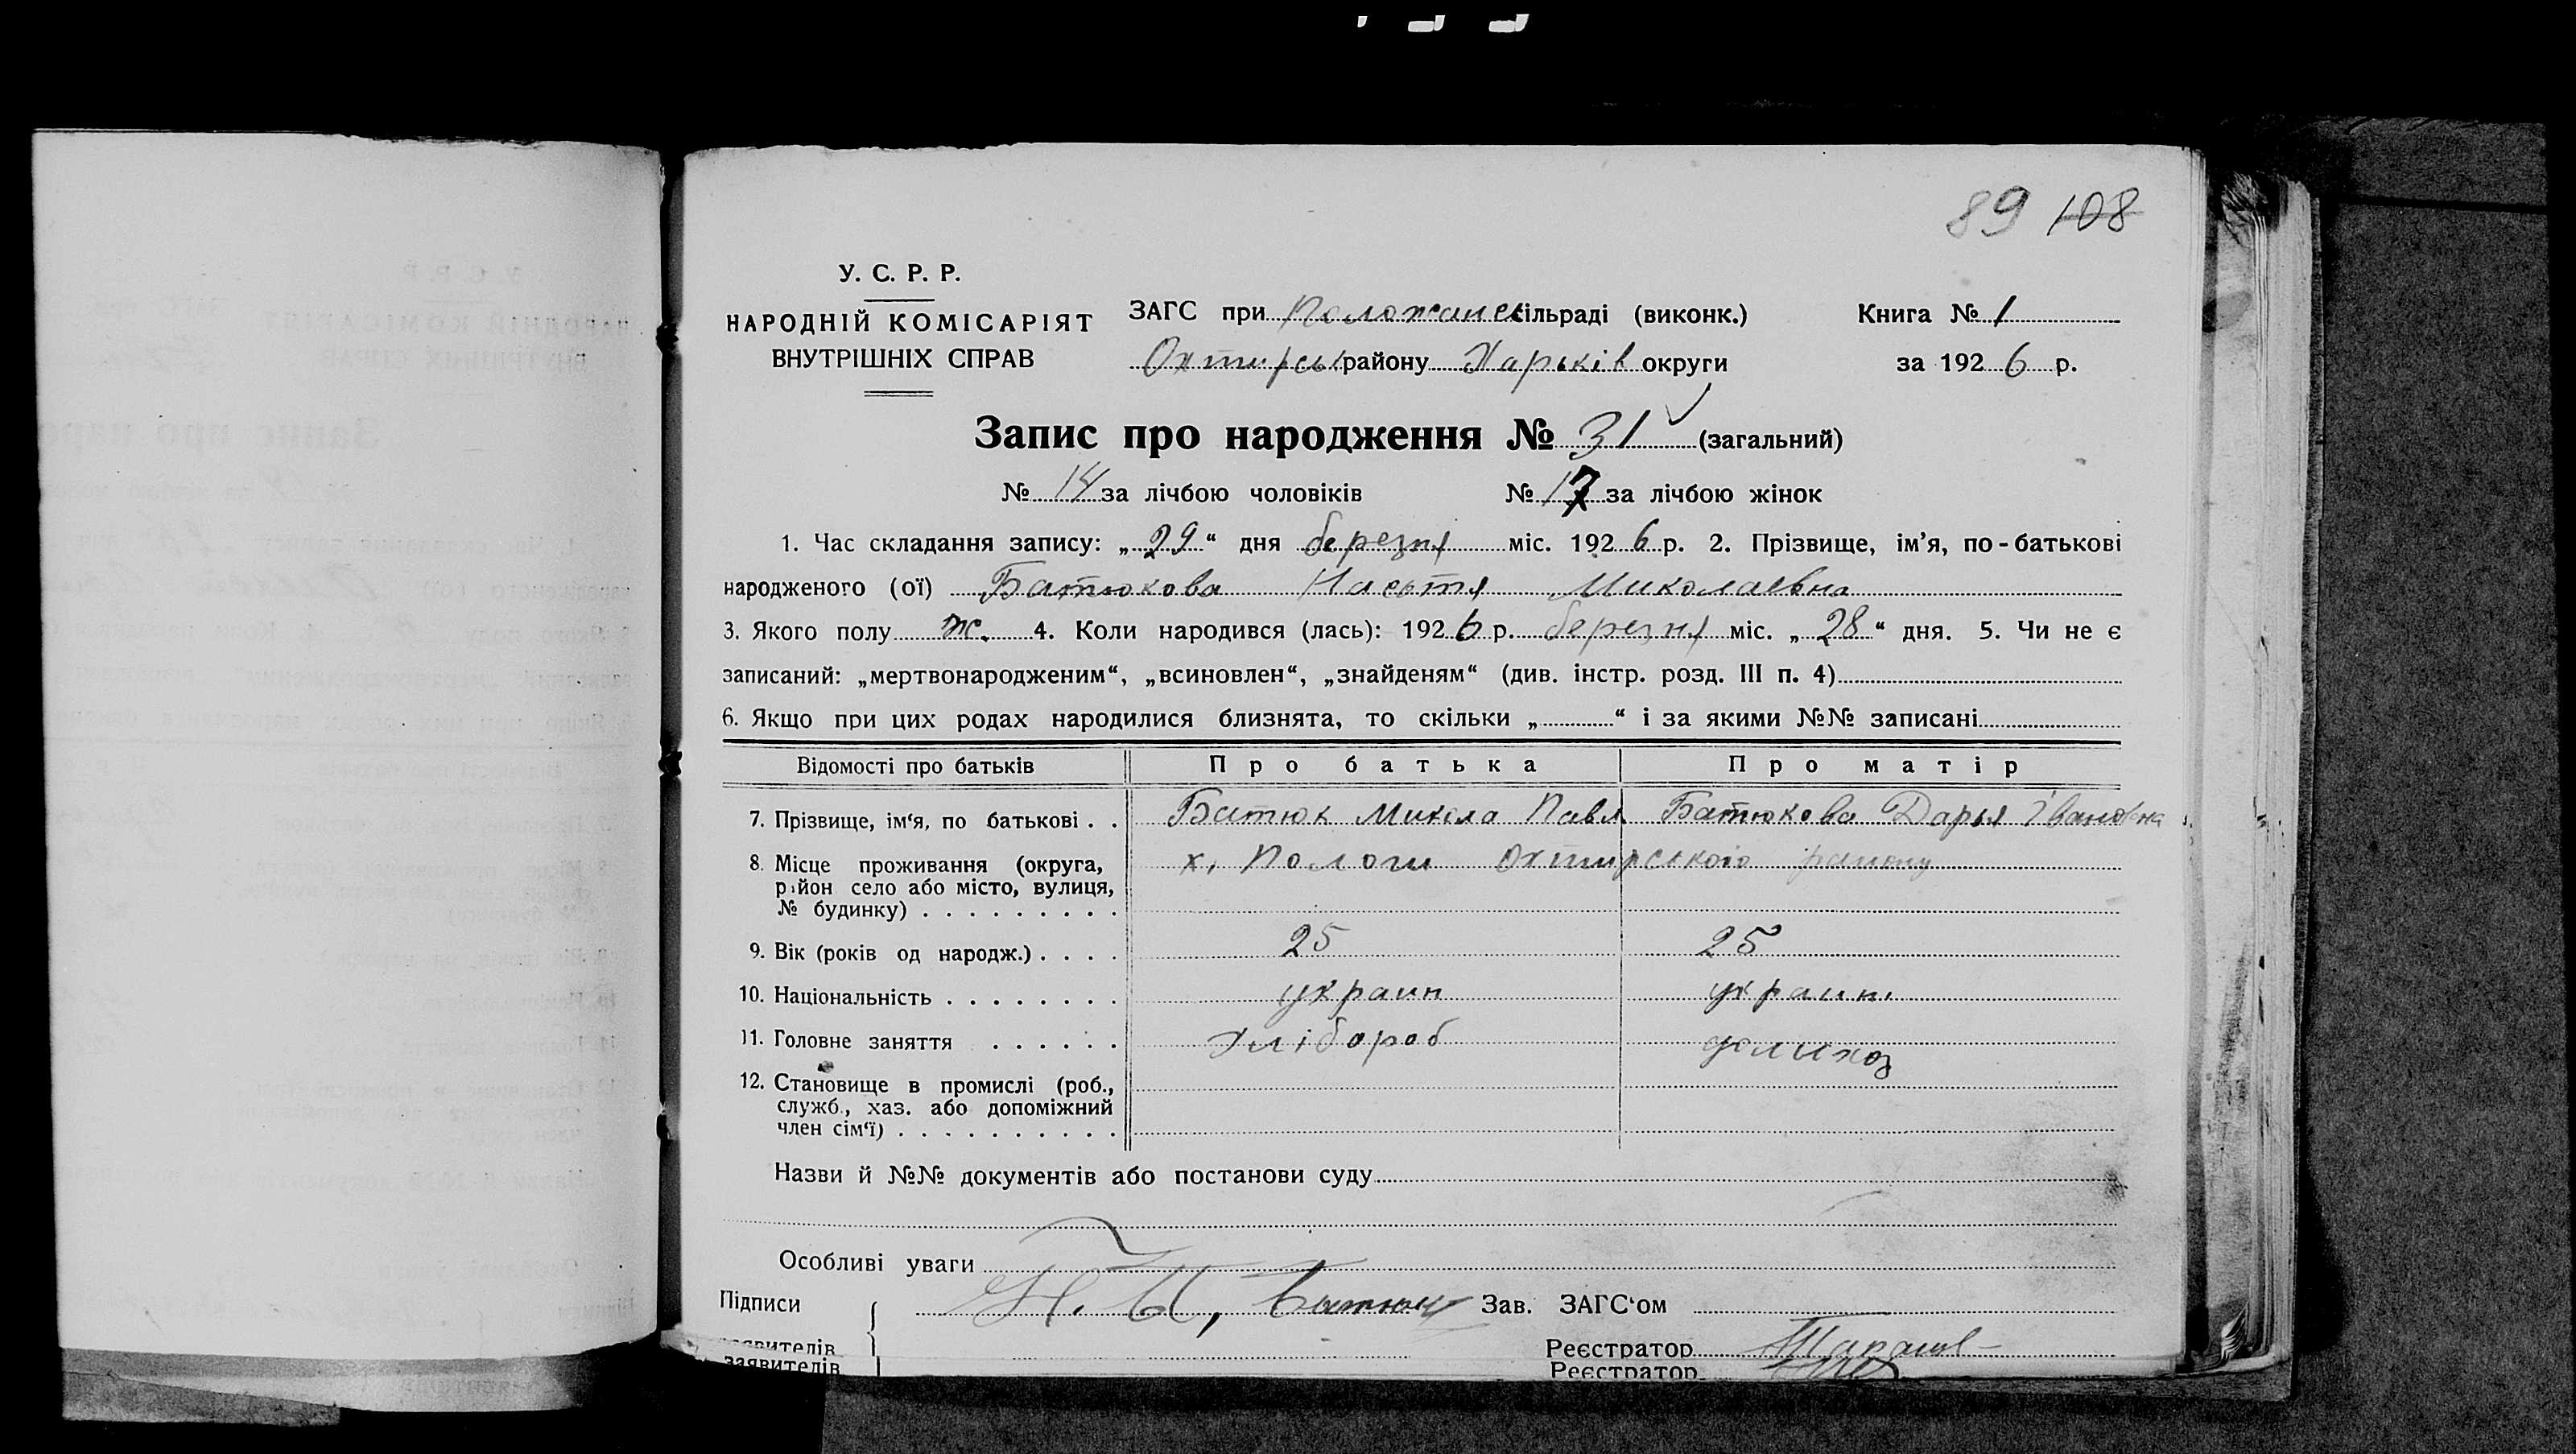 89 108
У. С. Р. Р.
НАРОДНІЙ КОМІСАРІЯТ
ВНУТРІШНІХ СПРАВ
ЗАГС при Положанс сільраді (виконк.)
Охтирсь району Харьків округи
Книга № 1
за 1926 р.
Запис про народження № 31 (загальний)
№ 14 за лічбою чоловіків № 17 за лічбою жінок
1. Час складання запису: „29“ дня березня міс. 1926 р. 2. Прізвище, ім’я, по-батькові
народженого (ої) Батюкова Насьтя Миколаевна
3. Якого полу ж. 4. Коли народився (лась): 1926 р. березня міс. „28“ дня. 5. Чи не є
записаний: „мертвонародженим“, „всиновлен“, „знайденям“ (див. інстр. розд. III п. 4)
6. Якщо при цих родах народилися близнята, то скільки „ “ і за якими №№ записані
Відомості про батьків Про батька Про матір
7. Прізвище, ім‘я, по батькові . . Батюк Микола Павл Батюкова Дарья Івановна
8. Місце проживання (округа, х. Пологи Охтирського району
район село або місто, вулиця,
№ будинку) . . . . . . . . .
9. Вік (років од народж.) . . . . 25 25
10. Національність . . . . . . . . украин украин.
11. Головне заняття . . . . . . хлібороб
12. Становище в промислі (роб.,
служб., хаз. або допоміжний
член сім‘ї) . . . . . . . . . .
Назви й №№ документів або постанови суду
Особливі уваги
Підписи Батюк Зав. ЗАГС‘ом
заявителів Реєстратор
заявителів Реєстратор